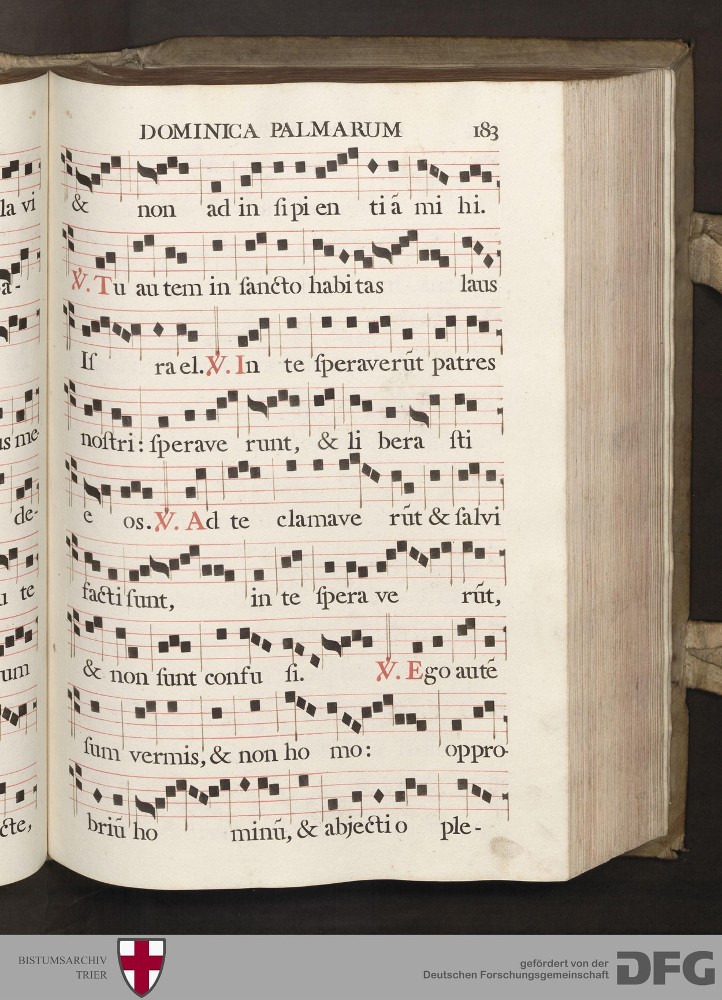 DOMINICA PALMARUM 183
la vi
& non ad in ſi pi en ti ã mi hi.
a-
℣. Tu au tem in ſancto habi tas laus
Iſ ra el. ℣. In te ſperaverūt patres
us me-
noſtri: ſperave runt, & li bera ſti
de-
e os. ℣. Ad te clamave rūt & ſalvi
u te
facti ſunt, in te ſpera ve rūt,
rum
& non ſunt confu ſi. ℣. Ego autē
ſum vermis, & non ho mo: oppro-
cte,
briū ho minū, & abjecti o ple-
BISTUMSARCHIV
TRIER
gefördert von der
Deutschen Forschungsgemeinschaft
DFG